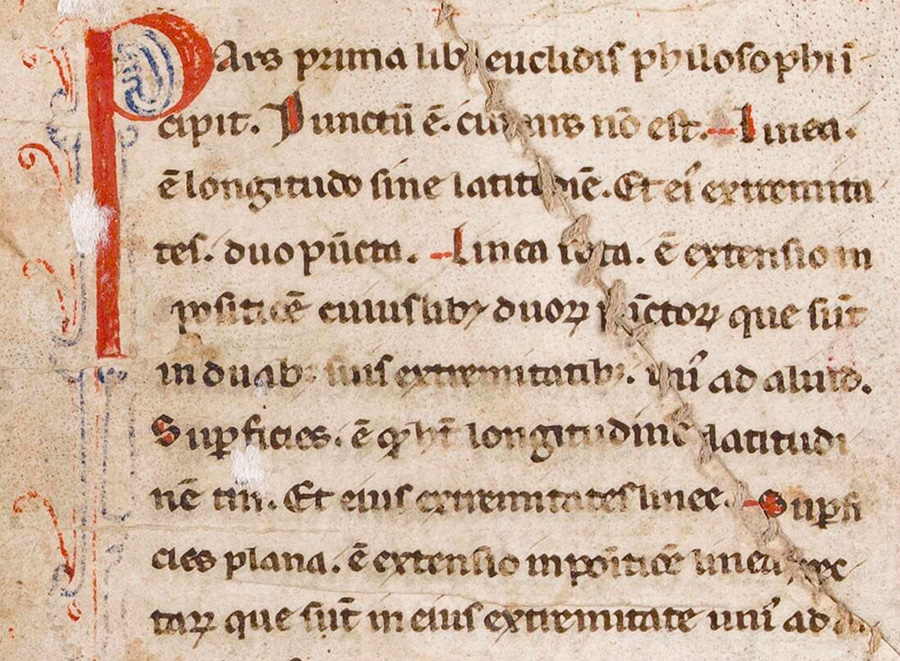 Pars prima lib euclidis philosophi ī
cipit. Punctū ē. cui pars nō est. Linea.
ē longitudo sine latitudinē. Et eiꝰ extremita
tes. duo pūcta. Linea recta. ē extensio in
positiōē cuiuslibꝫ duoꝝ pūctoꝝ que sūt
in duabꝫ suis extremitatibꝫ. uniꝰ ad aliud.
Suꝑficies. ē qꝫ hꝫt longitudinē latitudi
nē tm̄. Et eius extremitates linee. Suꝑfi
cies plana. ē extensio in poitiōē linea rec
taꝝ que sūt in eius extremitate uniꝰ ad